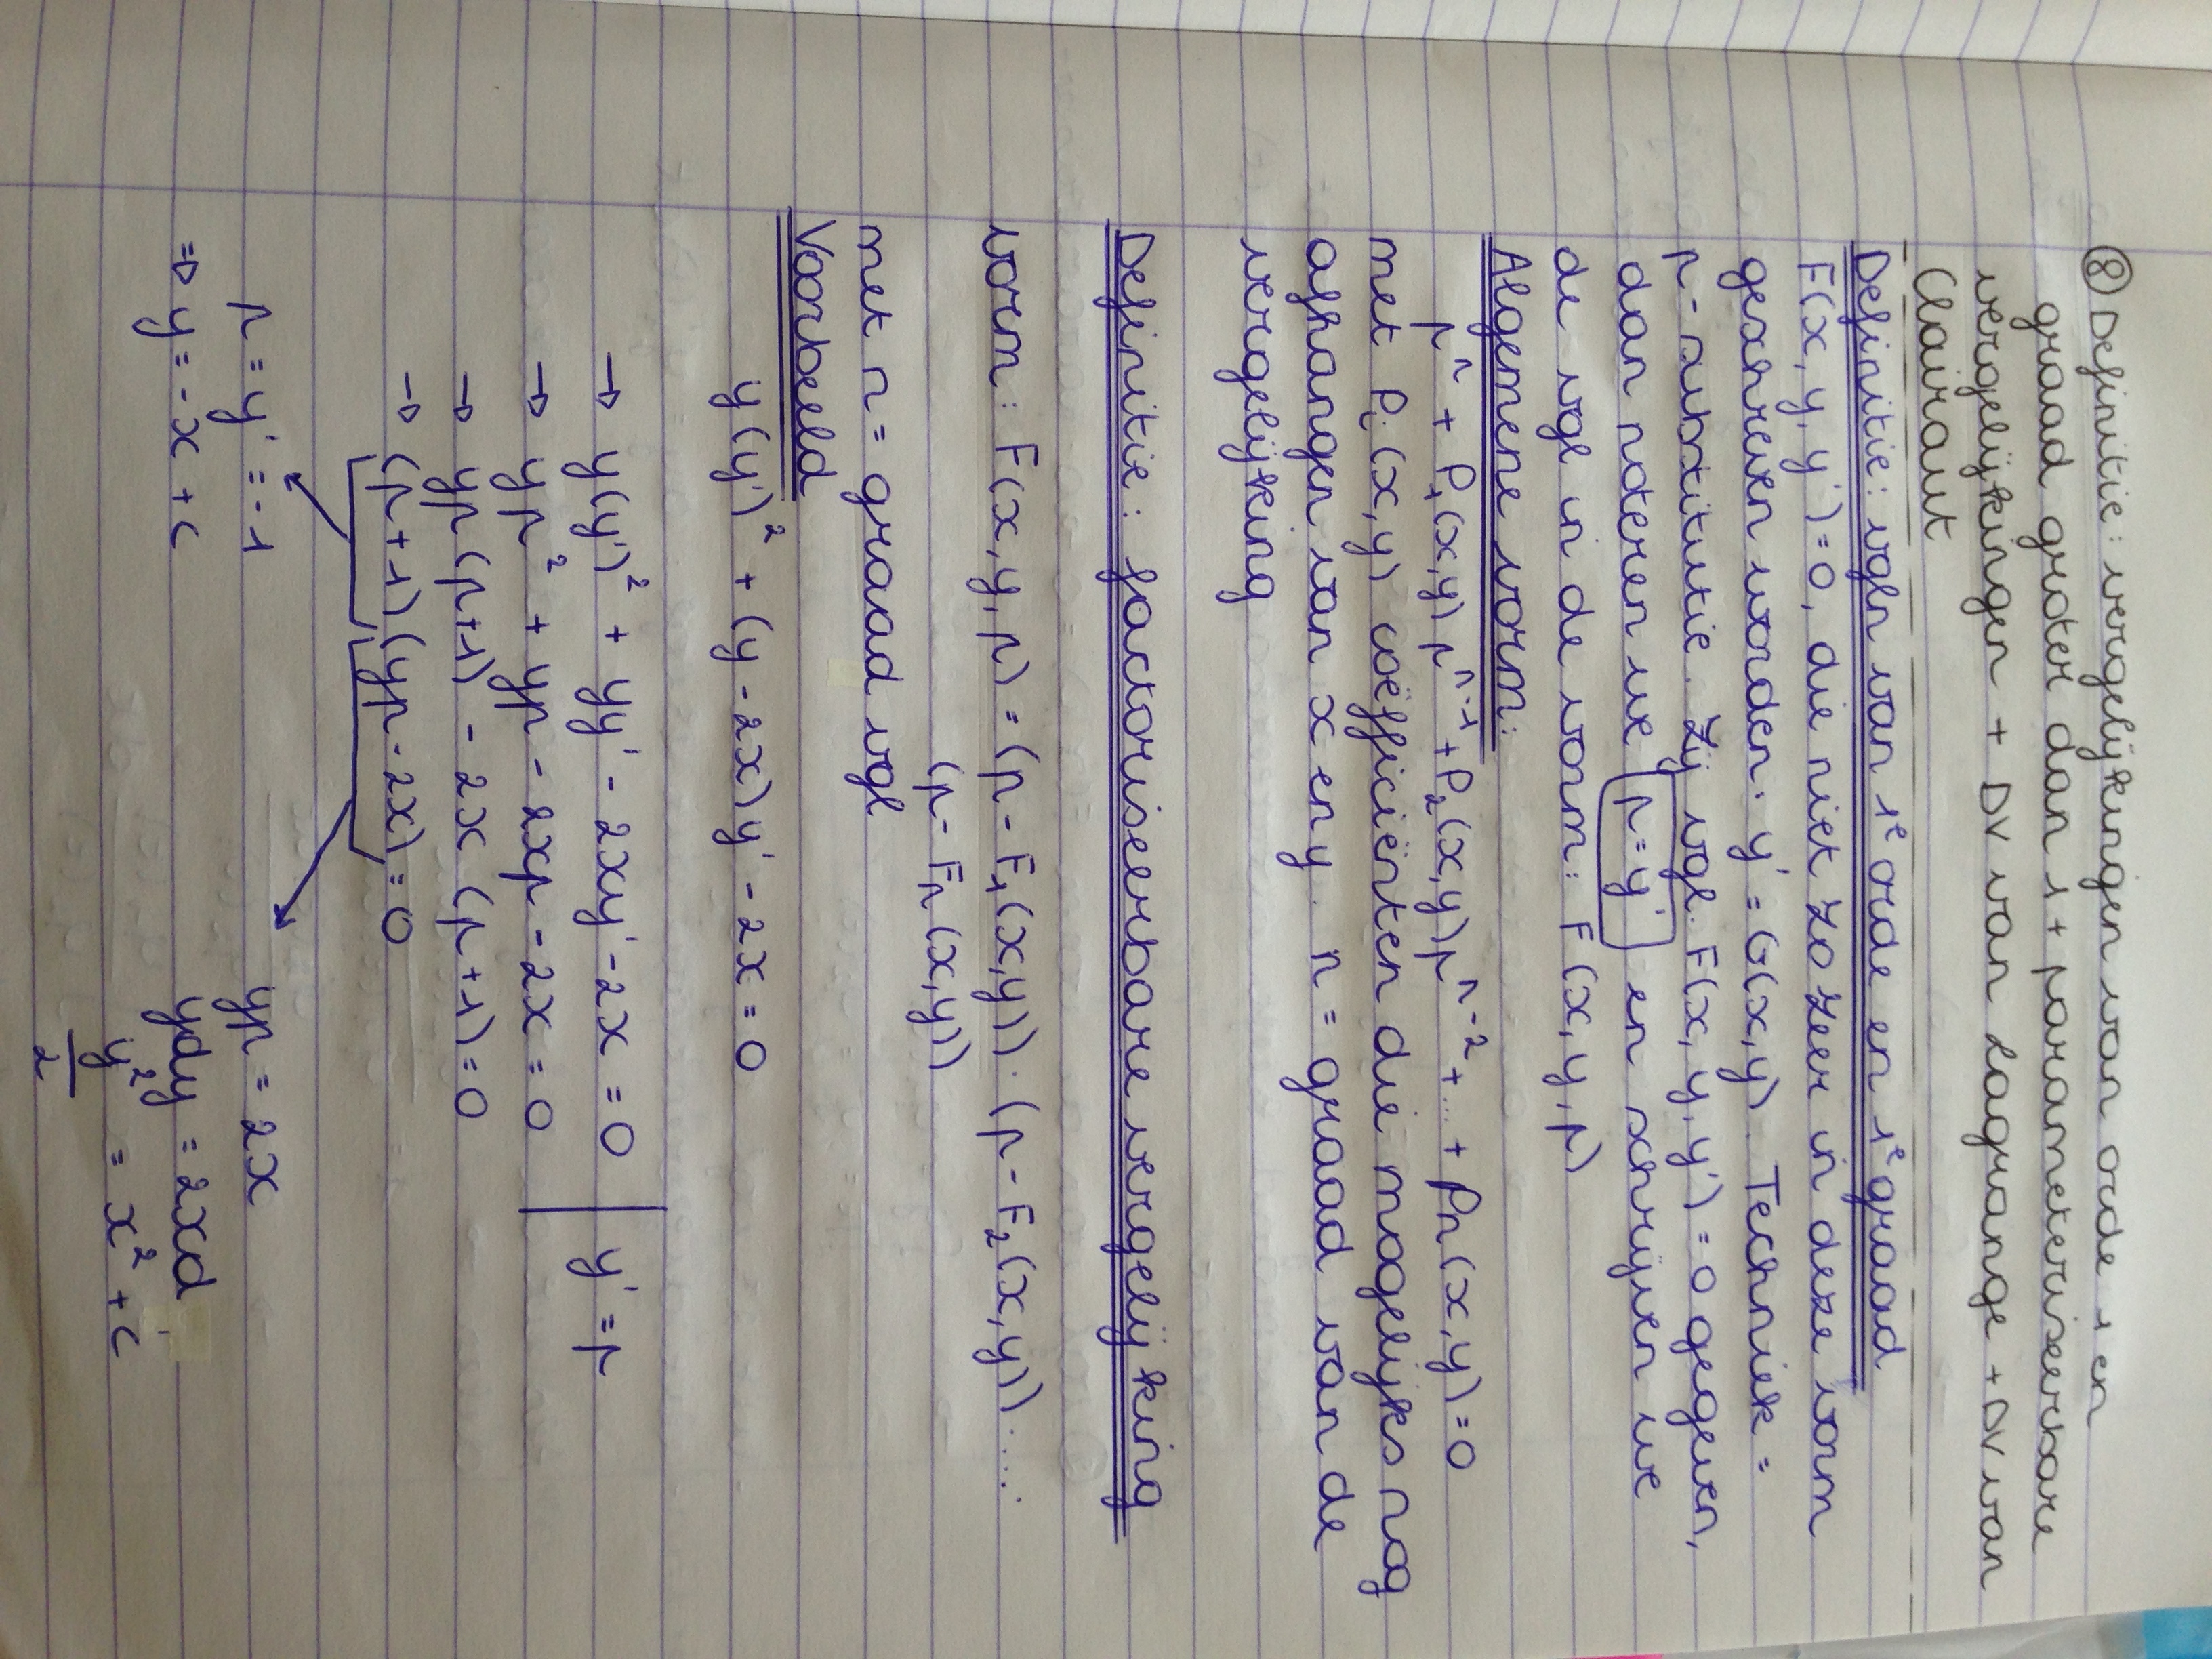 ⑧ Definitie: vergelijkingen van orde 1 en
graad groter dan 1 + parameteriseerbare
vergelijkingen + DV van Lagrange + DV van
Clairaut
Definitie: vgln van 1e orde en 1e graad
F(x, y, y') = 0, die niet zo zeer in deze vorm
geschreven worden. y' = G(x,y). Techniek =
p-substitutie. Zij vgl. F(x, y, y') = 0 gegeven,
dan noteren we p = y' en schrijven we
de vgl in de vorm: F(x, y, p)
Algemene vorm:
pⁿ + P₁(x,y) pⁿ⁻¹ + P₂(x,y) pⁿ⁻² + ... + Pₙ(x,y) = 0
met Pᵢ(x,y) coëfficiënten die mogelijks nog
afhangen van x en y. n = graad van de
vergelijking
Definitie: factoriseerbare vergelijking
vorm: F(x, y, p) = (p - F₁(x,y)) · (p - F₂(x,y)) · ... ·
(p - Fₙ(x,y))
met n = graad vgl
Voorbeeld
y(y')² + (y - 2x)y' - 2x = 0
→ y(y')² + yy' - 2xy' - 2x = 0 | y' = p
→ yp² + yp - 2xp - 2x = 0
→ yp(p+1) - 2x (p+1) = 0
→ (p+1)(yp - 2x) = 0
p = y' = -1 yp = 2x
⇒ y = -x + c ydy = 2xd
y²/2 = x² + c